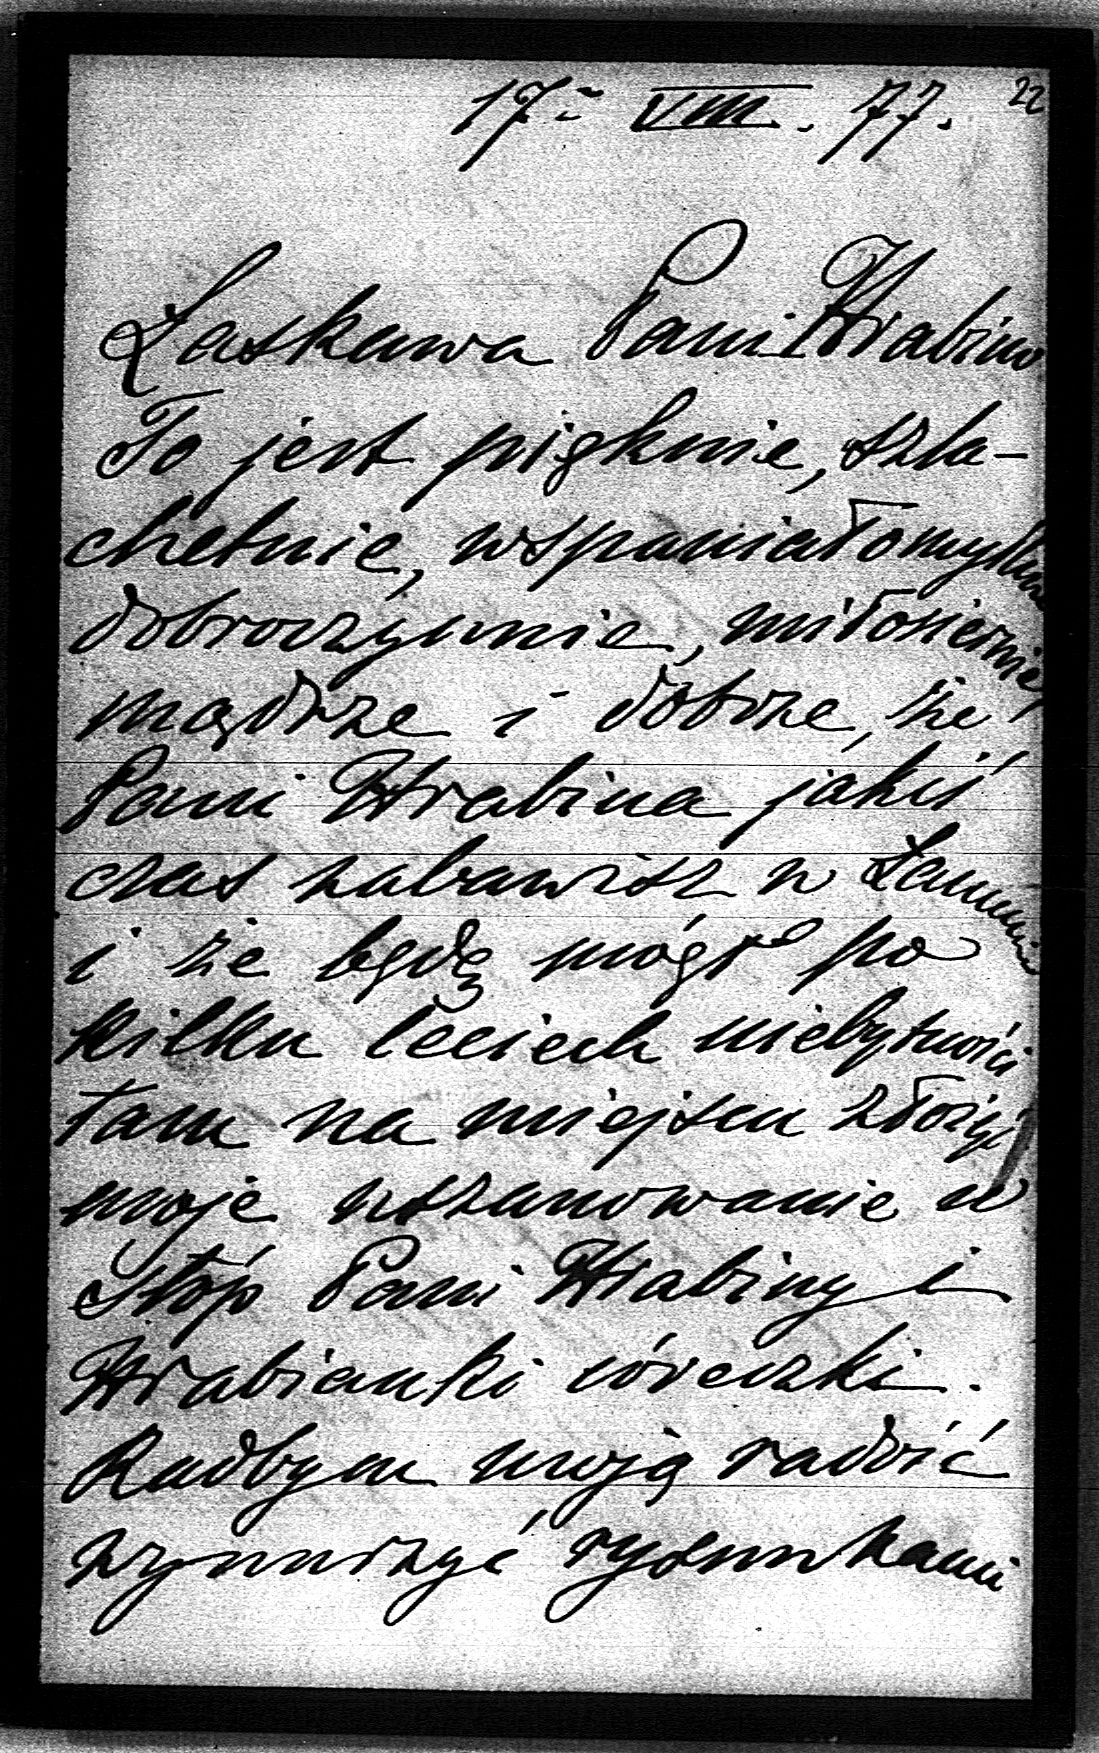 22
17. VIII. 77.
Łaskawa Pani Hrabino
To jest pięknie, szla-
chetnie, wspaniałomyślnie
dobroczynnie, miłosiernie,
mądrze i dobrze, że
Pani Hrabina jakiś
czas zabawisz w
i że będę mógł po
kilku leciech niebytności
tam na miejscu złożyć
moje uszanowanie u
stóp Pani Hrabiny i
Hrabianki córeczki.
Radbym moją radość
rysunkami